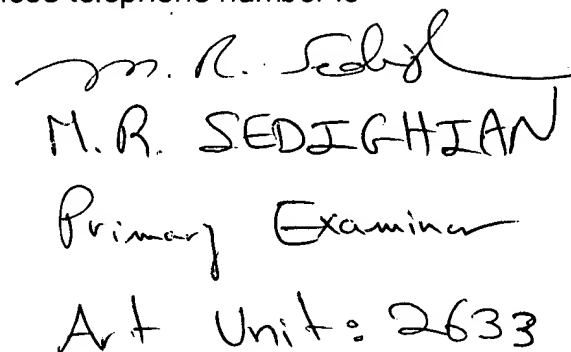 telephone number is
M. R. Sedigh
M.R. SEDIGHIAN
Primary Examiner
Art Unit: 2633